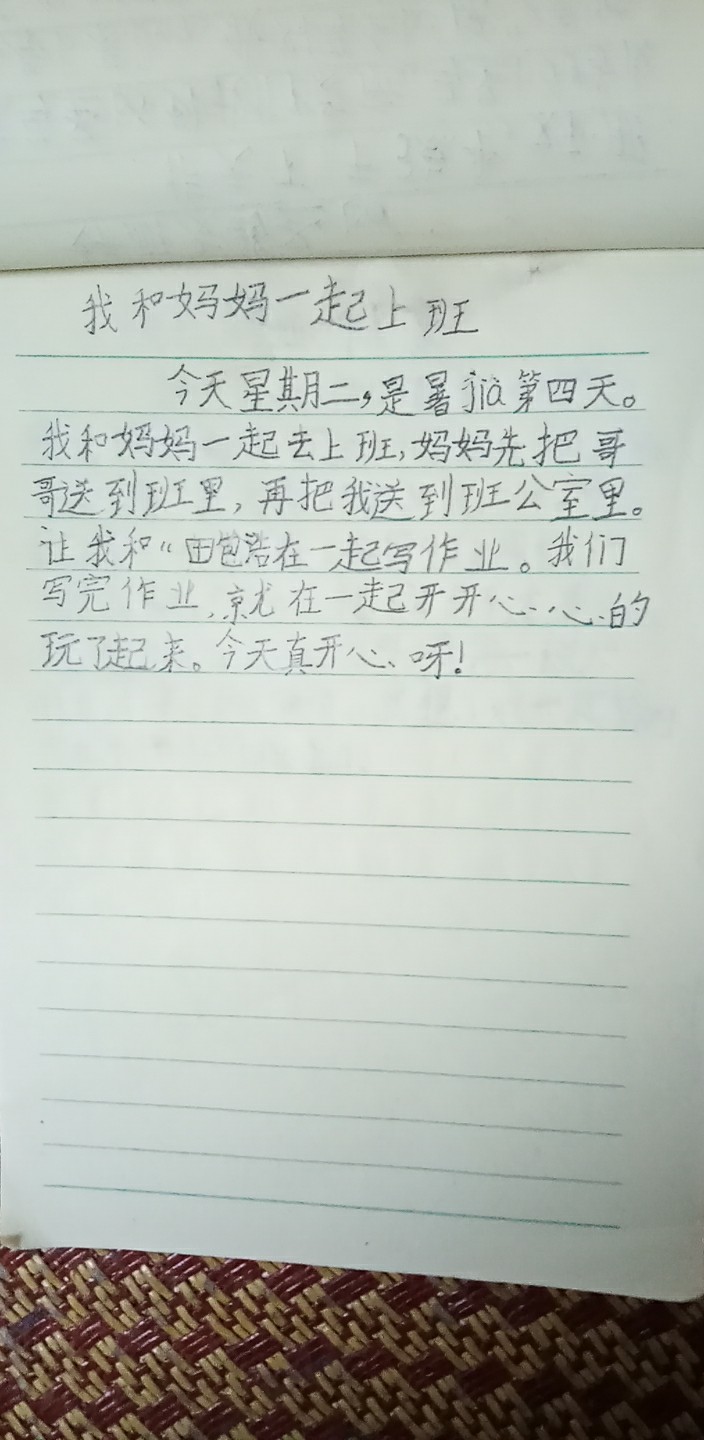 我和妈妈一起上班
今天星期二,是暑jià第四天。
我和妈妈一起去上班,妈妈先把哥
哥送到班里,再把我送到班公室里。
让我和“田包浩在一起写作业。我们
写完作业,就在一起开开心心的
玩了起来。今天真开心呀!